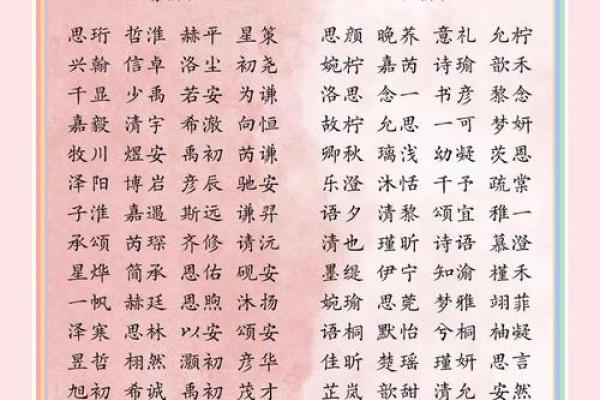 思珩 哲淮 赫平 星策 思颜 晚荞 意礼 允柠
兴翰 信卓 洛尘 初尧 婉柠 嘉芮 诗瑜 歆禾
千显 少禹 若安 为谦 洛思 念一 书彦 黎念
嘉毅 清宇 希澈 向恒 故柠 允思 一可 梦妍
牧川 煜安 禹初 芮谦 卿秋 璃浅 幼凝 茨恩
泽阳 博岩 彦辰 驰安 乐澄 沐恬 千予 疏棠
子淮 嘉遇 斯远 谦羿 语夕 清黎 颂宜 稚一
承颂 芮琛 齐修 请沅 清也 瑾昕 诗语 慕澄
星烨 简承 恩佑 砚安 墨缇 伊宁 知渝 槿禾
一帆 赫廷 恩煦 沐扬 婉瑜 思菀 梦雅 翊菲
泽寒 思林 以安 颂安 语桐 默怡 兮桐 柚凝
昱哲 栩然 灏初 彦华 佳昕 楚瑶 瑾妍 思言
旭初 希诚 禹初 茂才 芷岚 歆甜 清允 安然